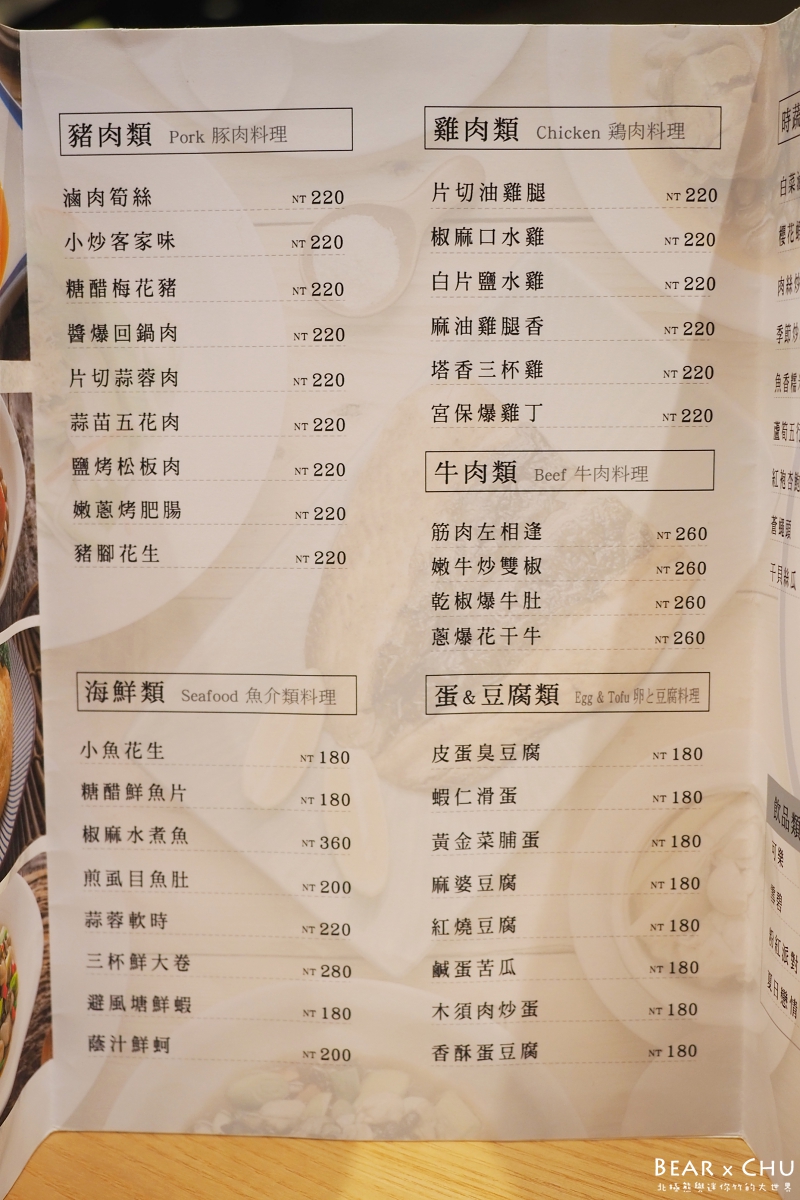 豬肉類 Pork 豚肉料理
滷肉筍絲 NT 220
小炒客家味 NT 220
糖醋梅花豬 NT 220
醬爆回鍋肉 NT 220
片切蒜蓉肉 NT 220
蒜苗五花肉 NT 220
鹽烤松板肉 NT 220
嫩蔥烤肥腸 NT 220
豬腳花生 NT 220
海鮮類 Seafood 魚介類料理
小魚花生 NT 180
糖醋鮮魚片 NT 180
椒麻水煮魚 NT 360
煎虱目魚肚 NT 200
蒜蓉軟時 NT 220
三杯鮮大卷 NT 280
避風塘鮮蝦 NT 180
蔭汁鮮蚵 NT 200
雞肉類 Chicken 鶏肉料理
片切油雞腿 NT 220
椒麻口水雞 NT 220
白片鹽水雞 NT 220
麻油雞腿香 NT 220
塔香三杯雞 NT 220
宮保爆雞丁 NT 220
牛肉類 Beef 牛肉料理
筋肉左相逢 NT 260
嫩牛炒雙椒 NT 260
乾椒爆牛肚 NT 260
蔥爆花干牛 NT 260
蛋&豆腐類 Egg & Tofu 卵と豆腐料理
皮蛋臭豆腐 NT 180
蝦仁滑蛋 NT 180
黃金菜脯蛋 NT 180
麻婆豆腐 NT 180
紅燒豆腐 NT 180
鹹蛋苦瓜 NT 180
木須肉炒蛋 NT 180
香酥蛋豆腐 NT 180
時蔬
白菜
櫻花蝦
肉絲炒
季節炒
魚香糯
蘆筍五行
紅袍杏鮑
蒼蠅頭
干貝絲瓜
飲品類
可樂
雪碧
粉紅派對
夏日戀情
BEAR x CHU
北極熊與迷你竹的大世界